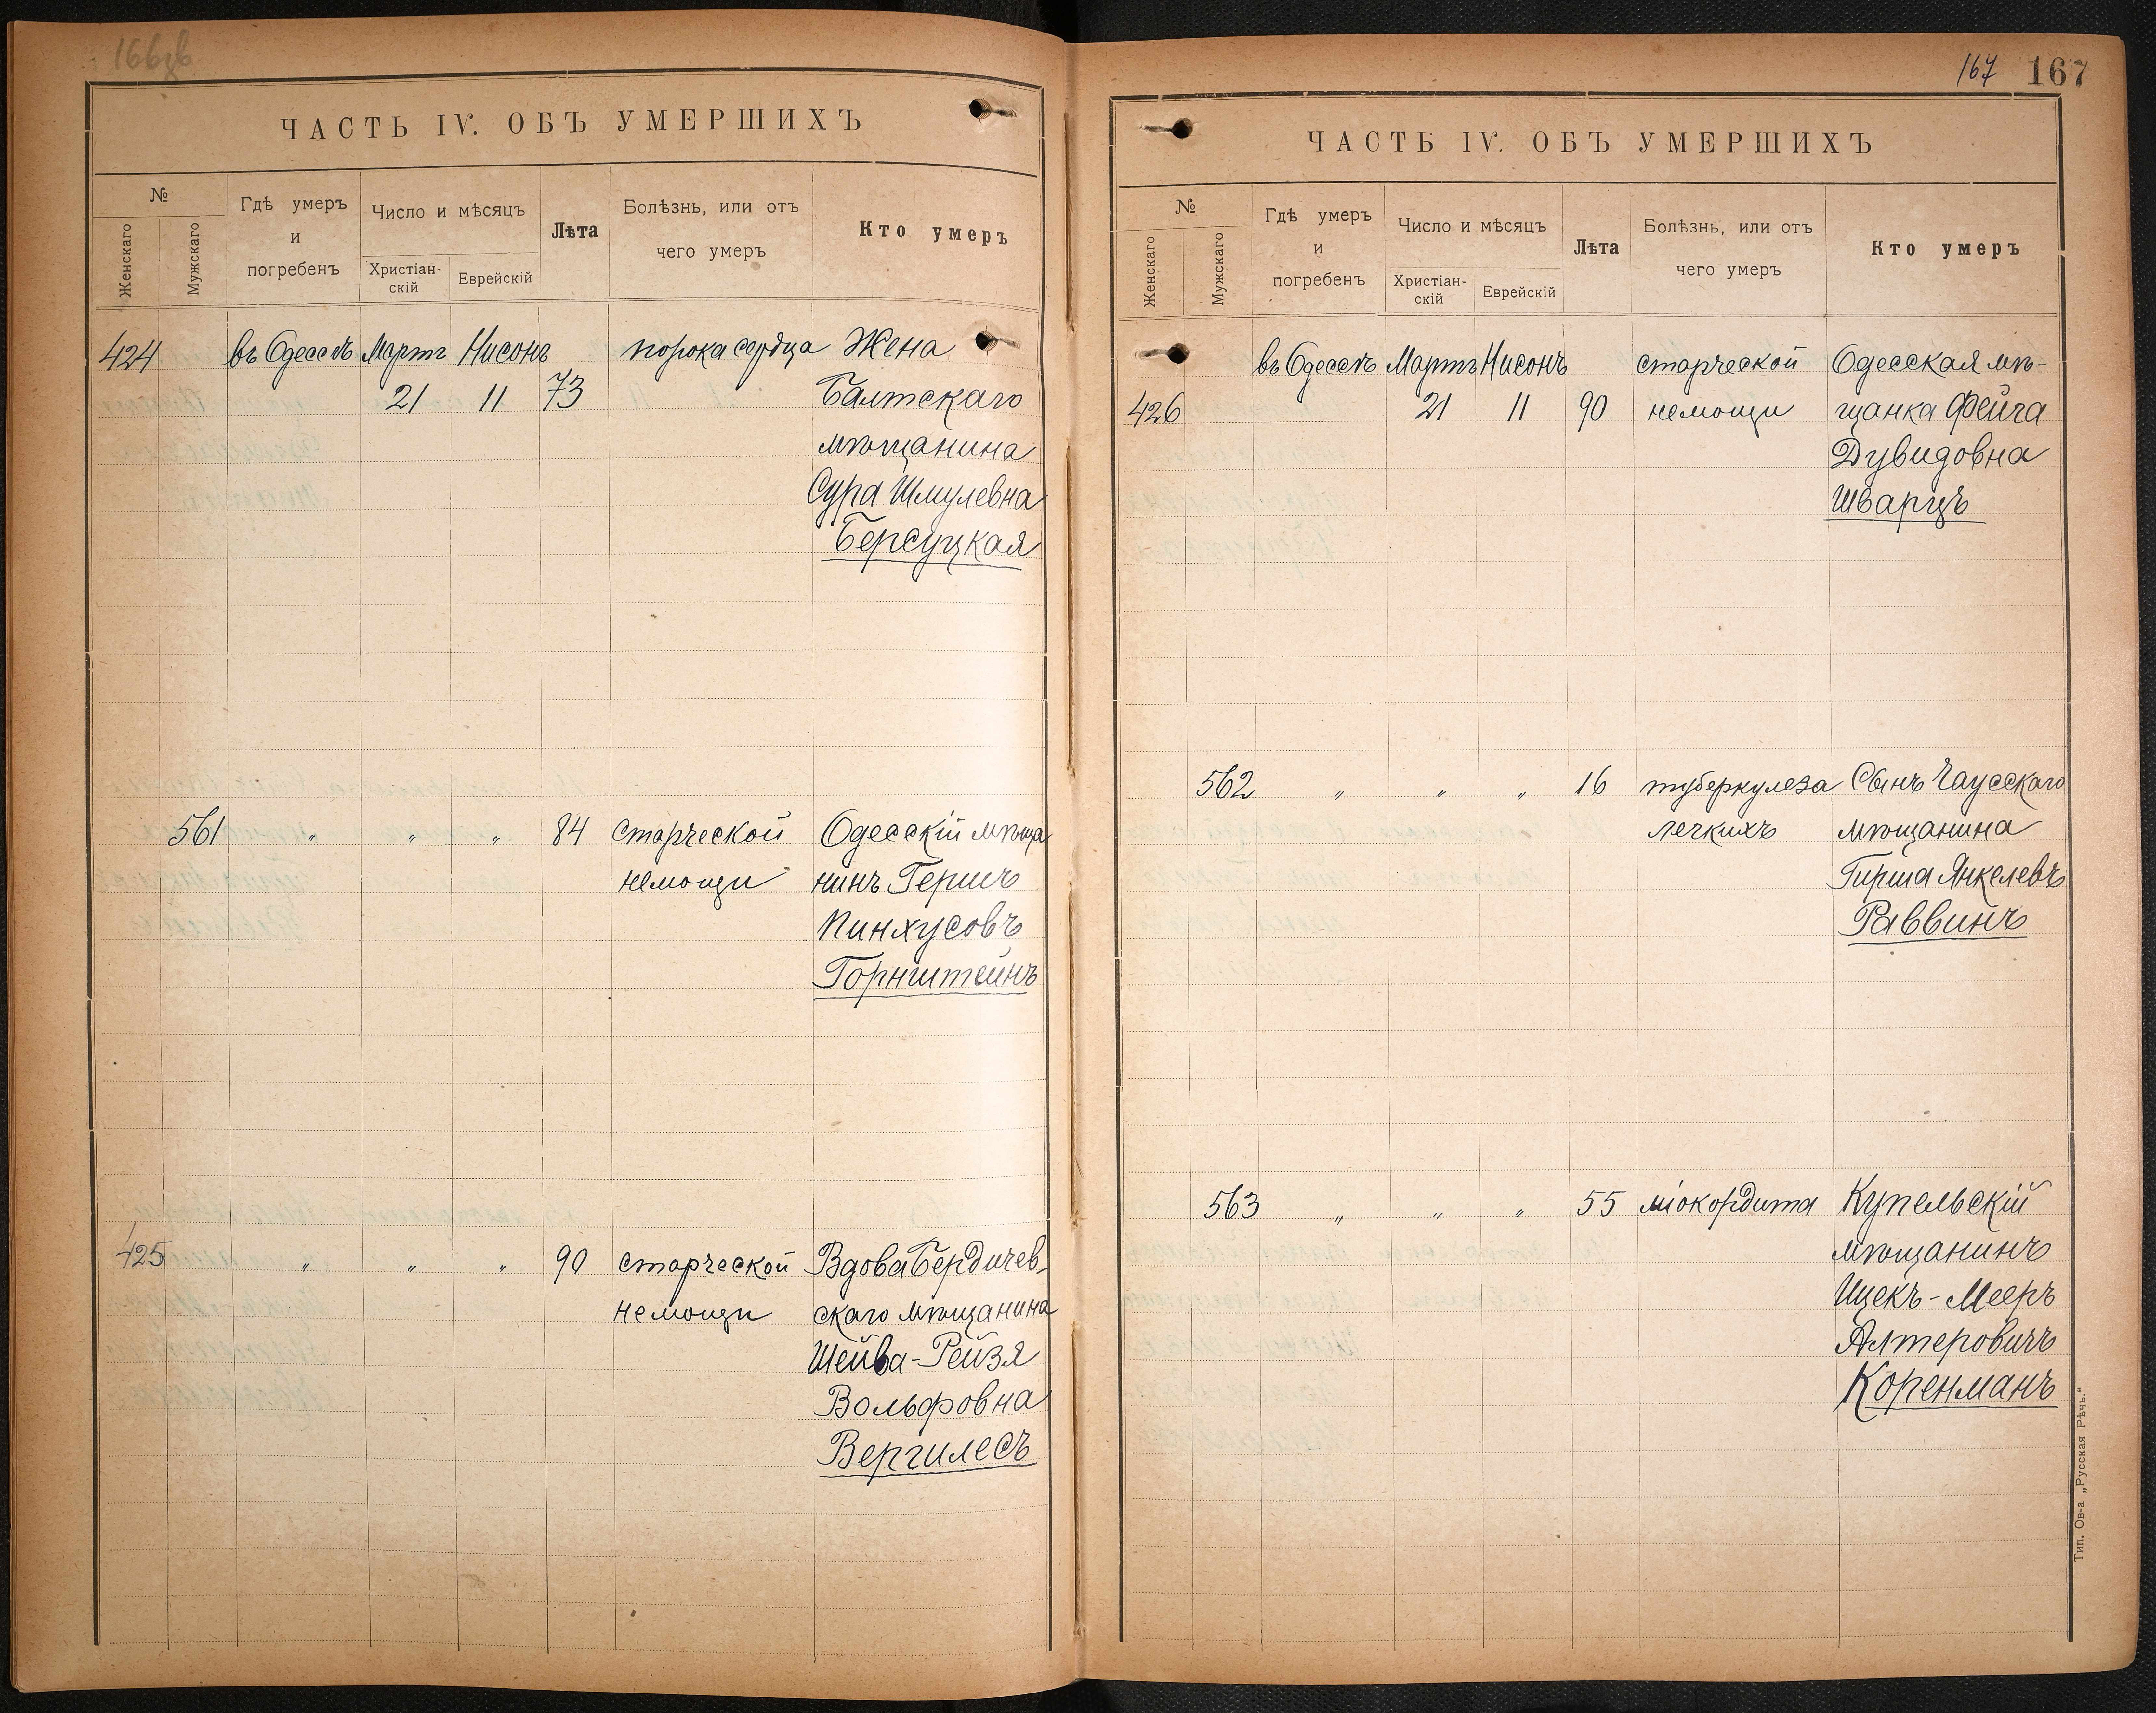 ЧАСТЬ IV. ОБЪ УМЕРШИХЪ
№
Женскаго
Мужскаго
Гдѣ умеръ
и
погребенъ
Число и мѣсяцъ
Христіан-
скій
Еврейскій
Лѣта
Болѣзнь, или отъ
чего умеръ
Кто умеръ
424 въ Одессѣ Мартъ Нисонъ порока сердца Жена
21 11 73 Балтскаго
мѣщанина
Сура Шмулевна
Берсуцкая
561 " " " 84 старческой Одесскій мѣща
немощи нинъ Гершъ
Пинхусовъ
Горнштейнъ
425 " " " 90 старческой Вдова Бердичев-
немощи скаго мѣщанина
Шейва-Рейзя
Вольфовна
Вергилесъ
167 167
ЧАСТЬ IV. ОБЪ УМЕРШИХЪ
№
Женскаго
Мужскаго
Гдѣ умеръ
и
погребенъ
Число и мѣсяцъ
Христіан-
скій
Еврейскій
Лѣта
Болѣзнь, или отъ
чего умеръ
Кто умеръ
въ Одессѣ Мартъ Нисонъ старческой Одесская мѣ-
426 21 11 90 немощи щанка Фейга
Дувидовна
Шварцъ
562 " " " 16 туберкулеза Сынъ Чаусскаго
легкихъ мѣщанина
Гирша Янкелевъ
Раввинъ
563 " " " 55 міокордита Купельскій
мѣщанинъ
Ицекъ-Мееръ
Алтеровичъ
Коренманъ
Тип. Ов-а „Русская Рѣчь."